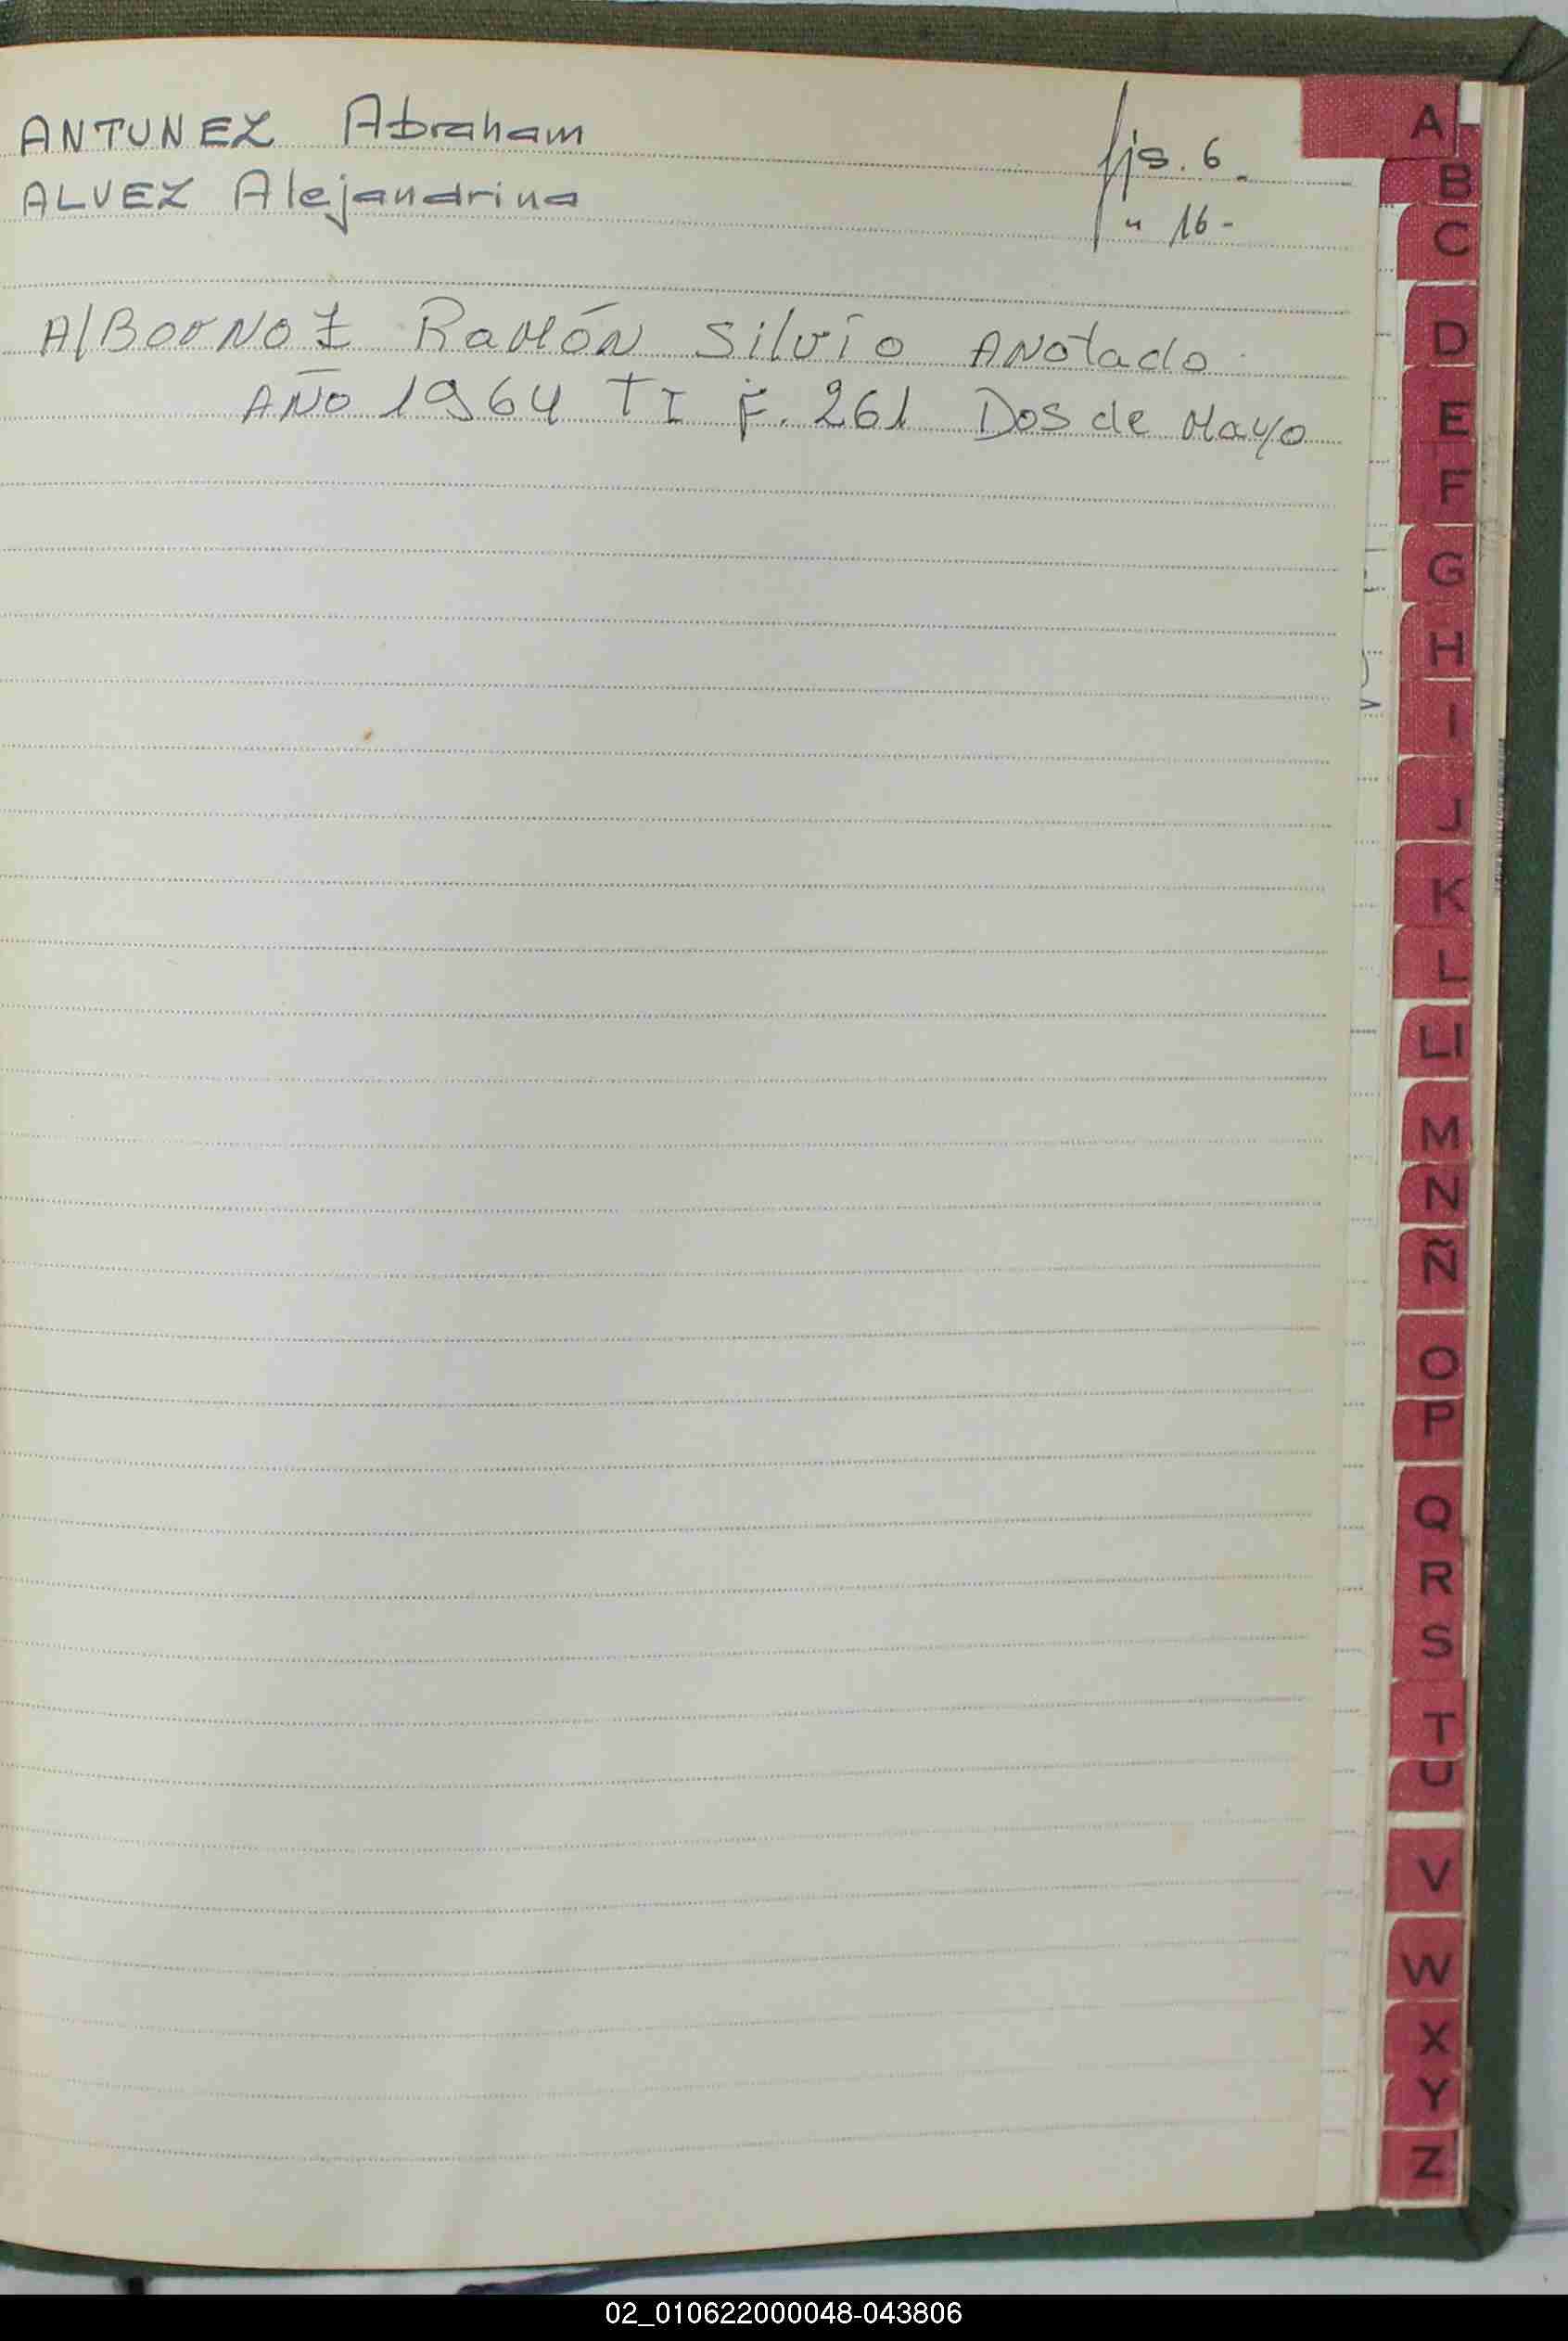 ANTUNEZ Abraham fjs. 6.
ALVEZ Alejandrina " 16-
AlBorNoZ RaMóN Silvio ANotado
AÑO 1964 T I F. 261 Dos de Mayo
A
B
C
D
E
F
G
H
I
J
K
L
Ll
M
N
Ñ
O
P
Q
R
S
T
U
V
W
X
Y
Z
02_010622000048-043806